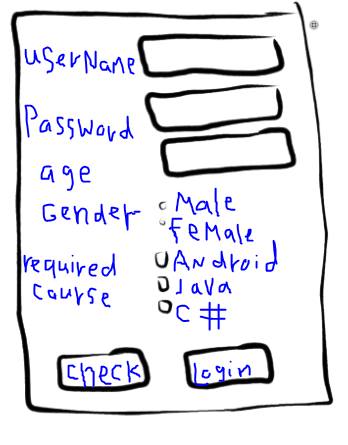 userName
Password
age
Gender Male
feMale
required Android
course Java
C #
check Login